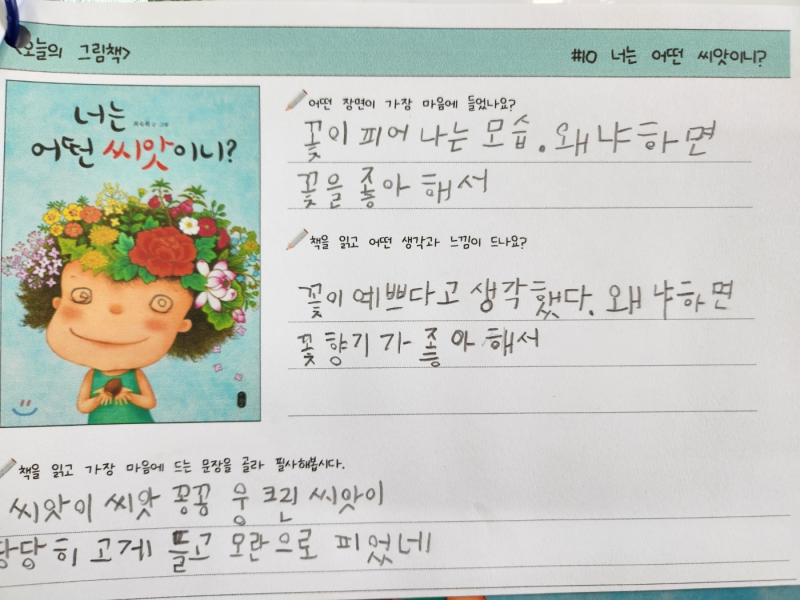 <오늘의 그림책>
#10 너는 어떤 씨앗이니?
너는
어떤 씨앗이니?
어떤 장면이 가장 마음에 들었나요?
꽃이 피어 나는 모습. 왜냐하면
꽃을 좋아 해서
책을 읽고 어떤 생각과 느낌이 드나요?
꽃이 예쁘다고 생각했다. 왜냐하면
꽃 향기가 좋아 해서
책을 읽고 가장 마음에 드는 문장을 골라 필사해봅시다.
씨앗이 씨앗 꽁꽁 웅크린 씨앗이
당당히 고개 들고 모란으로 피었네